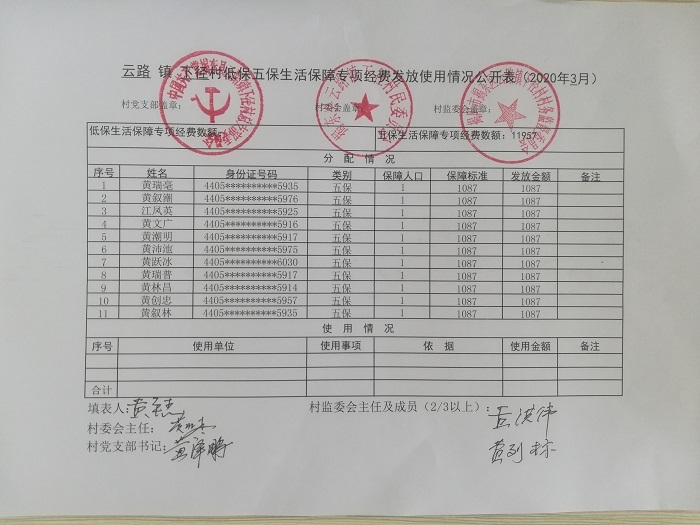 云路 镇 下径村低保五保生活保障专项经费发放使用情况公开表（2020年3月）
村党支部盖章： 村委会盖章： 村监委会盖章：
低保生活保障专项经费数额： 五保生活保障专项经费数额：11957
分 配 情 况
序号 姓名 身份证号码 类别 保障人口 保障标准 发放金额 备注
1 黄瑞毫 4405**********5935 五保 1 1087 1087
2 黄叙潮 4405**********5976 五保 1 1087 1087
3 江凤英 4405**********5925 五保 1 1087 1087
4 黄文广 4405**********5916 五保 1 1087 1087
5 黄潮明 4405**********5917 五保 1 1087 1087
6 黄沛池 4405**********5975 五保 1 1087 1087
7 黄跃冰 4405**********6030 五保 1 1087 1087
8 黄瑞普 4405**********5917 五保 1 1087 1087
9 黄林昌 4405**********5914 五保 1 1087 1087
10 黄创忠 4405**********5957 五保 1 1087 1087
11 黄叙林 4405**********5935 五保 1 1087 1087
使 用 情 况
序号 使用单位 使用事项 依 据 使用金额 备注
合计
填表人： 村监委会主任及成员（2/3以上）：
村委会主任：
村党支部书记：